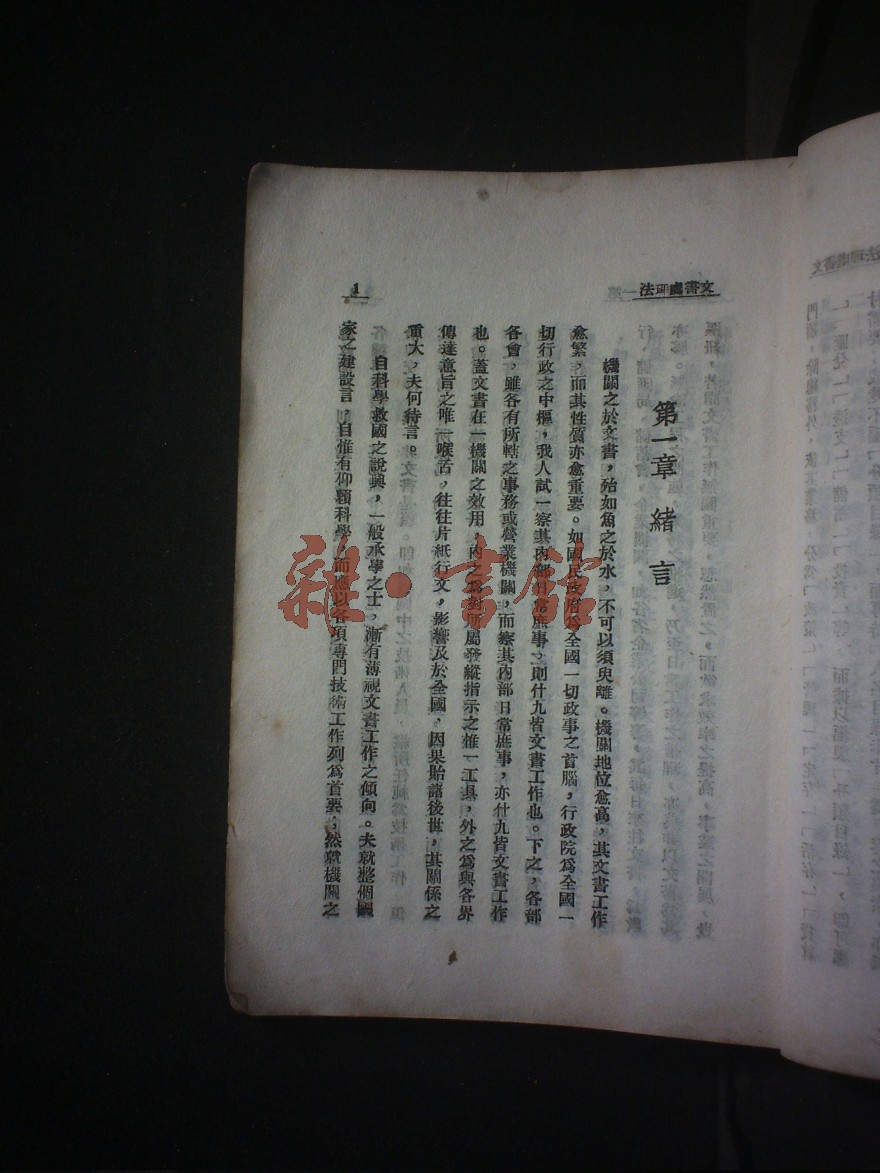 文書處理法
1
第一章 緒言
機關之於文書，殆如魚之於水，不可以須臾離。機關地位愈高，其文書工作
愈繁，而其性質亦愈重要。如國民政府爲全國一切政事之首腦，行政院爲全國一
切行政之中樞，我人試一察其內部日常庶事，則什九皆文書工作也。下之，各部
各會，雖各有所轄之事務或營業機關，而察其內部日常庶事，亦什九皆文書工作
也。蓋文書在一機關之效用，內之爲對所屬發縱指示之惟一工具，外之爲與各界
傳達意旨之唯一喉舌，往往片紙行文，影響及於全國，因果貽諸後世，其關係之
重大，夫何待言。
自科學救國之說興，一般承學之士，漸有薄視文書工作之傾向。夫就整個國
家之建設言，自惟有仰賴科學，而應以各項專門技術工作列爲首要，然就機關之
雜·書館